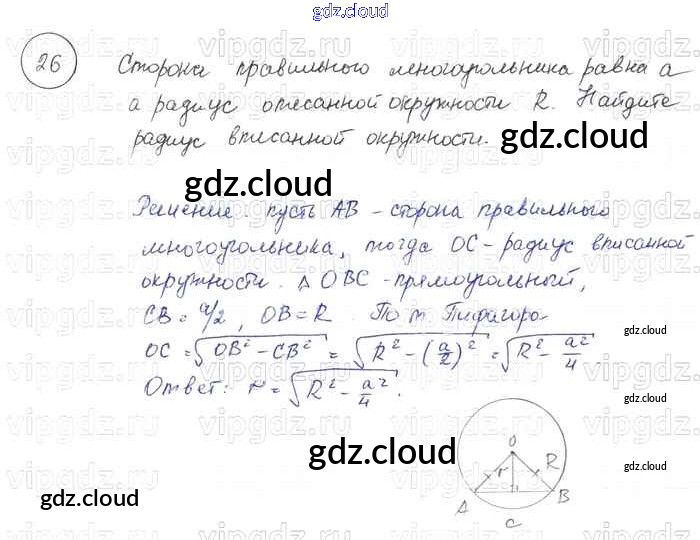 gdz.cloud
26 Сторона правильного многоугольника равна a
а радиус описанной окружности R. Найдите
радиус вписанной окружности.
gdz.cloud
gdz.cloud
Решение. пусть AB – сторона правильного
многоугольника, тогда OC – радиус вписанной
окружности. Δ OBC – прямоугольный,
CB = a/2, OB = R. По т. Пифагора
OC = √(OB² – CB²) = √(R² – (a/2)²) = √(R² – a²/4)
gdz.cloud
Ответ: r = √(R² – a²/4).
gdz.cloud
gdz.cloud
O
r R
A B
C
gdz.cloud
gdz.cloud
gdz.cloud